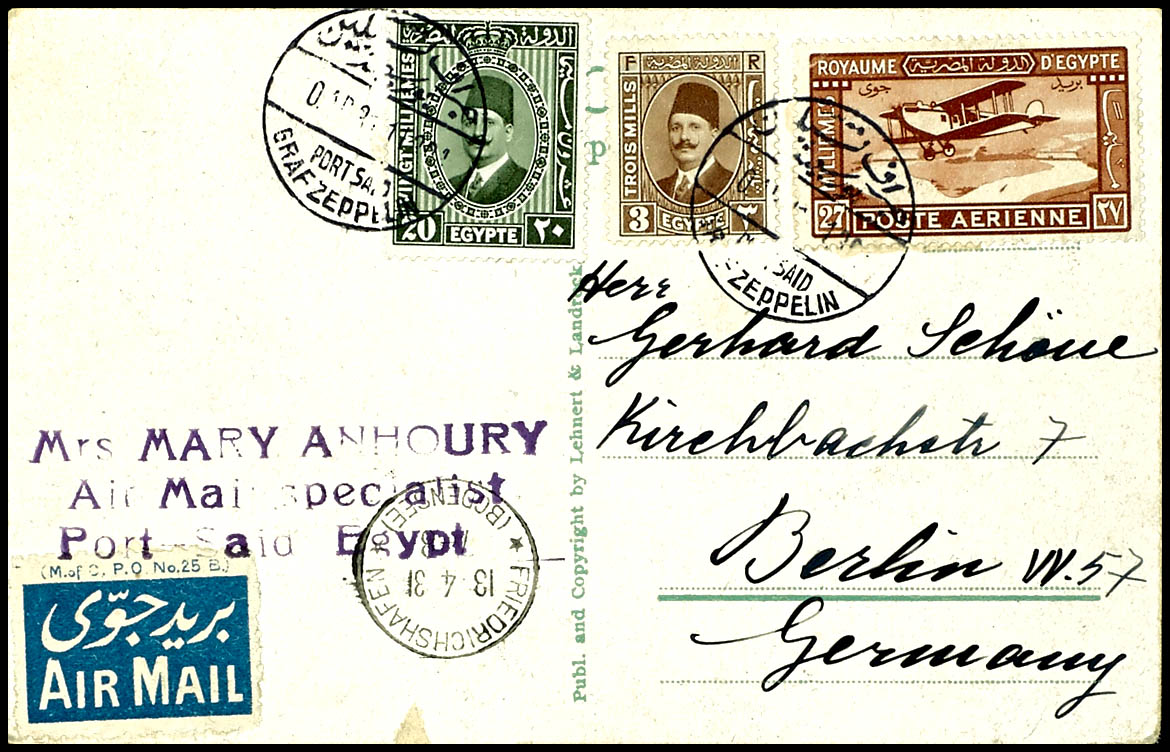 VINGT MILLIEMES
الدولة المصرية
20 EGYPTE ٢٠
PORT SAID
GRAF ZEPPELIN
F R
الدولة المصرية
TROIS MILLS
3 EGYPTE ٣
ROYAUME الدولة المصرية D'EGYPTE
بريد جوى
MILLIEMES
27 POSTE AERIENNE ٢٧
SAID
ZEPPELIN
Herr
Gerhard Schöne
Kirchbachstr 7
Berlin W.57
Germany
Publ. and Copyright by Lehnert & Landrock
Mrs MARY ANHOURY
Air Mail specialist
Port-Said Egypt
FRIEDRICHSHAFEN
(BODENSEE)
13 4 31
(M. of C. P.O. No. 25 B.)
بريد جوّى
AIR MAIL